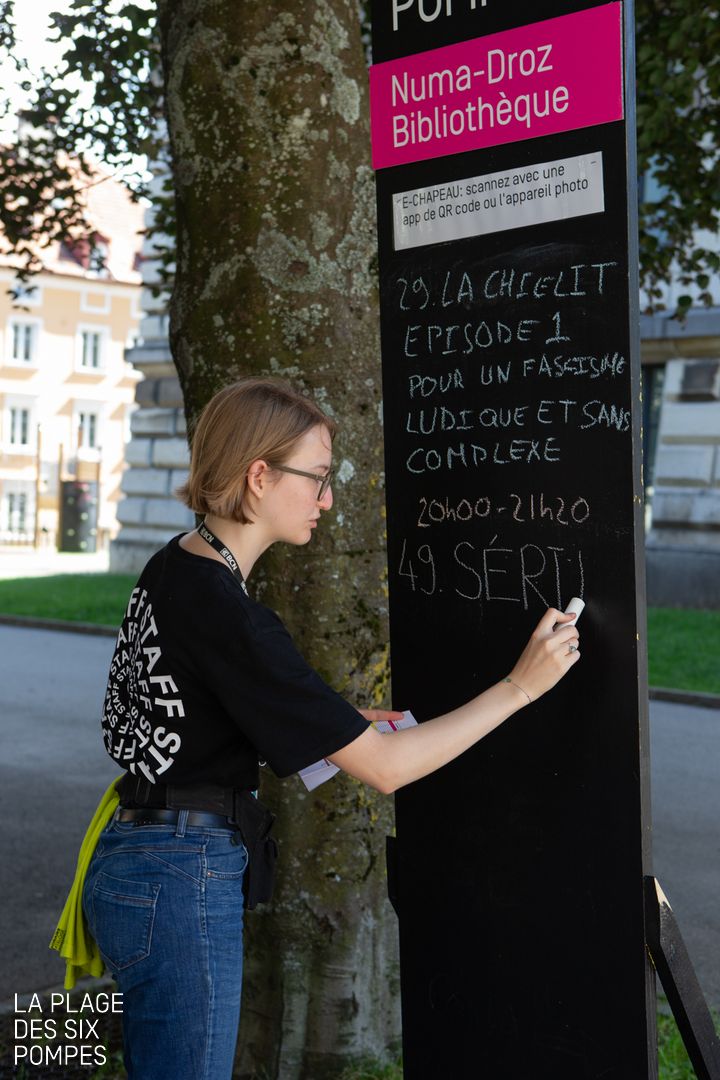 Numa-Droz
Bibliothèque
E-CHAPEAU: scannez avec une
app de QR code ou l'appareil photo
29. LA CHIELIT
EPISODE 1
POUR UN FASCISME
LUDIQUE ET SANS
COMPLEXE
20h00-21h20
49. SÉRTI
BCN
STAFF
STAFF
STAFF
STAFF
LA PLAGE
DES SIX
POMPES